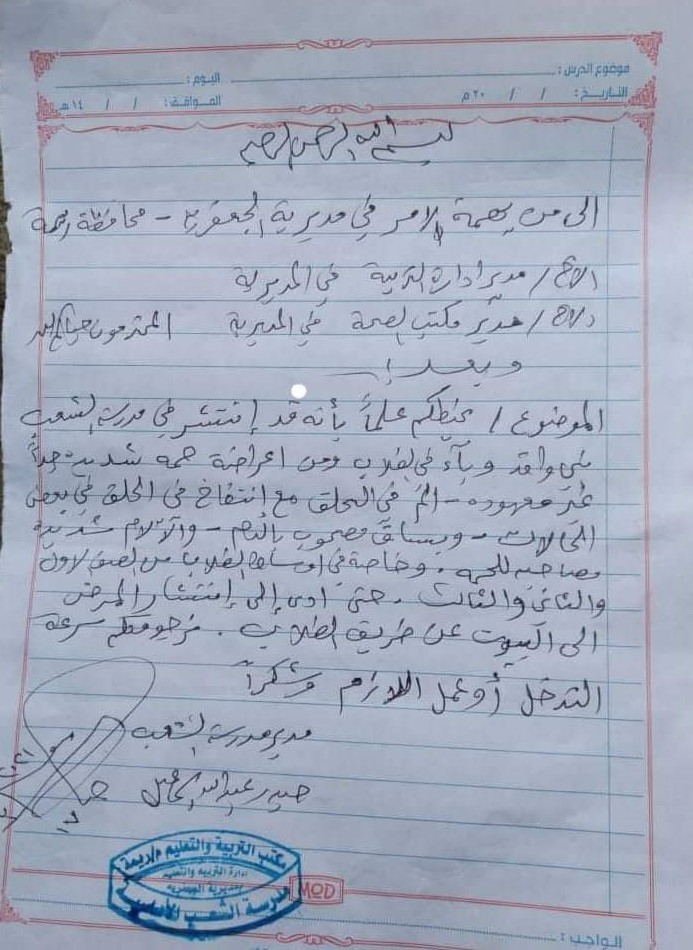 موضوع الدرس : اليوم :
التاريخ : / / ٢٠ م الموافق : / / ١٤ هـ
بسم الله الرحمن الرحيم
الى من يهمة الامر في مديرية الجعفرية - محافظة ريمة
الاخ / مدير ادارة التربية في المديرية
الاخ / مدير مكتب الصحة في المديرية المحترمون
وبعد
الموضوع / نحيطكم علماً بأنه قد إنتشر في مدرسة الشعب
وبآء في الطلاب ومن اعراضة حمه شديدة جداً
غير معهوده - الم في الحلق مع إنتفاخ في الحلق في بعض
الحالات - وبساق مصحوب بالدم - والآلام شديدة
مصاحبه للحمه . وخاصة في اوساط الطلاب من الصف الاول
والثاني والثالث . حتى ادى إلى إنتشار المرض
الى البيوت عن طريق الطلاب . نرجو منكم سرعة
التدخل أو عمل اللازم وشكراً
مدير مدرسة الشعب
حيدر عبدالله
مكتب التربية والتعليم م/ريمة
ادارة التربية والتعليم
مديرية الجعفرية
مدرسة الشعب الأساسية
MOD
الواجب :